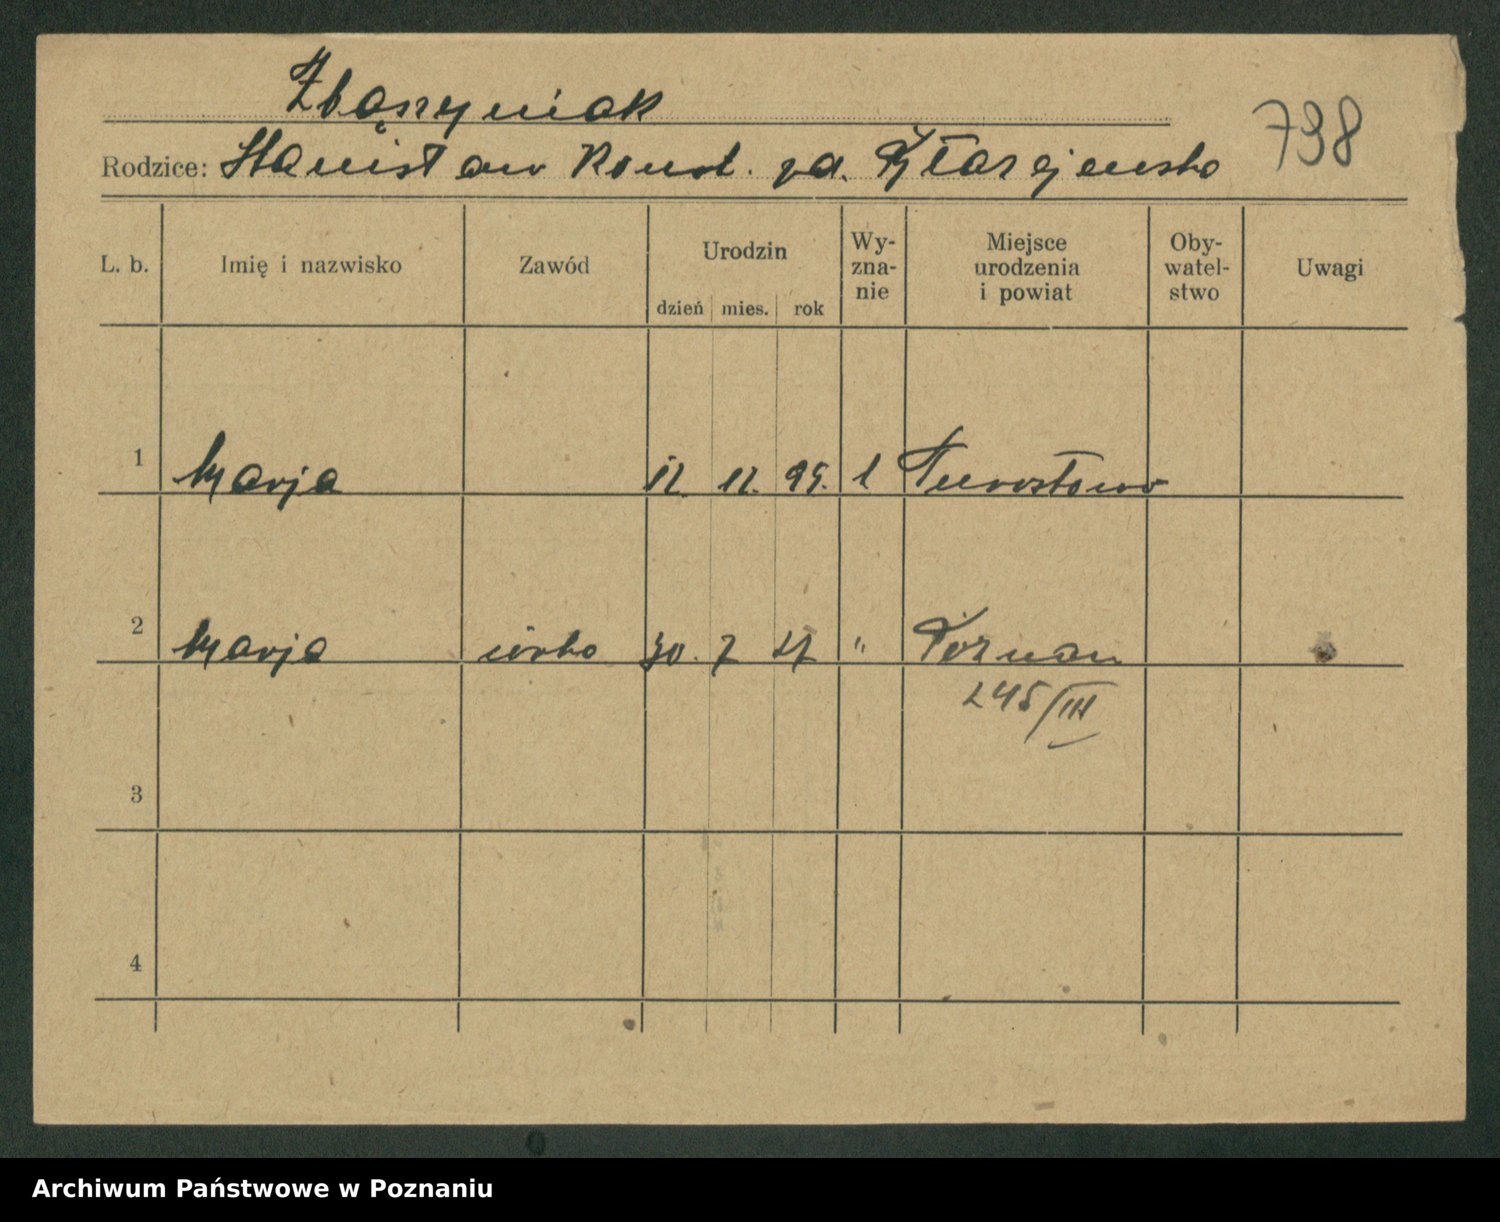 Zbąszyniak
738
Rodzice: Stanisław Konst. za.
L. b. Imię i nazwisko Zawód Urodzin dzień mies. rok Wy-zna-nie Miejsce urodzenia i powiat Oby-watel-stwo Uwagi
1 Marja 12. 12. 99. 1 Turostowo
2 Marja córka 30. 7 27 " Poznan
245/III
3
4
Archiwum Państwowe w Poznaniu